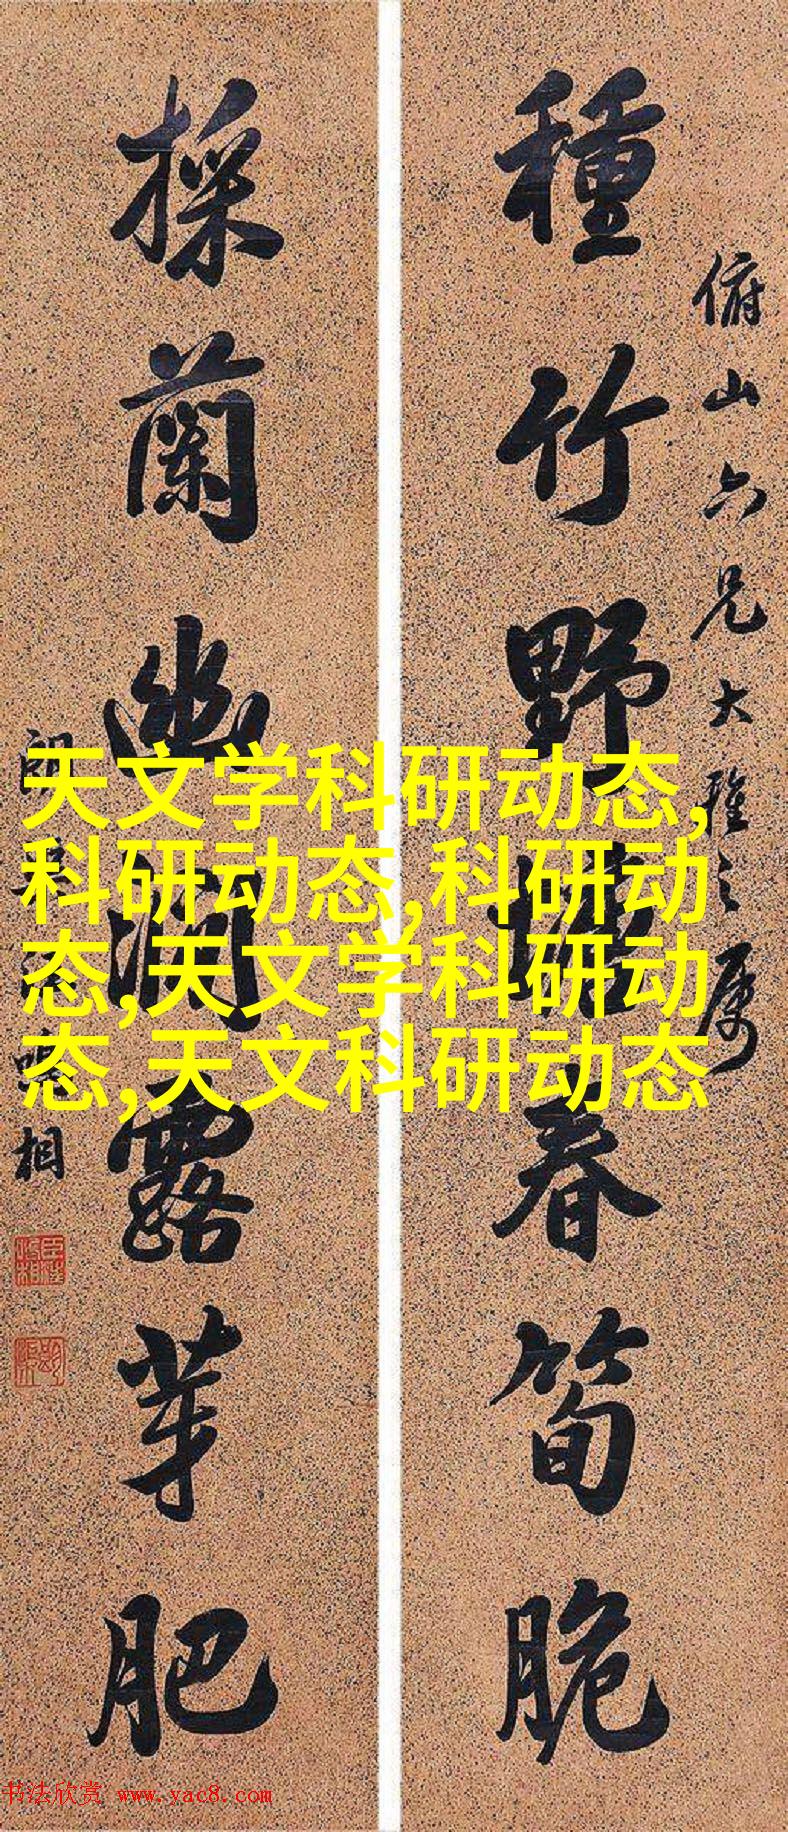 俯山六兄大雅之屬
種竹野塘春筍脆
採蘭幽澗露芽肥
鳴相
天文学科研动态,
科研动态,科研动
态,天文学科研动
态,天文科研动态
书法欣赏 www.yac8.com